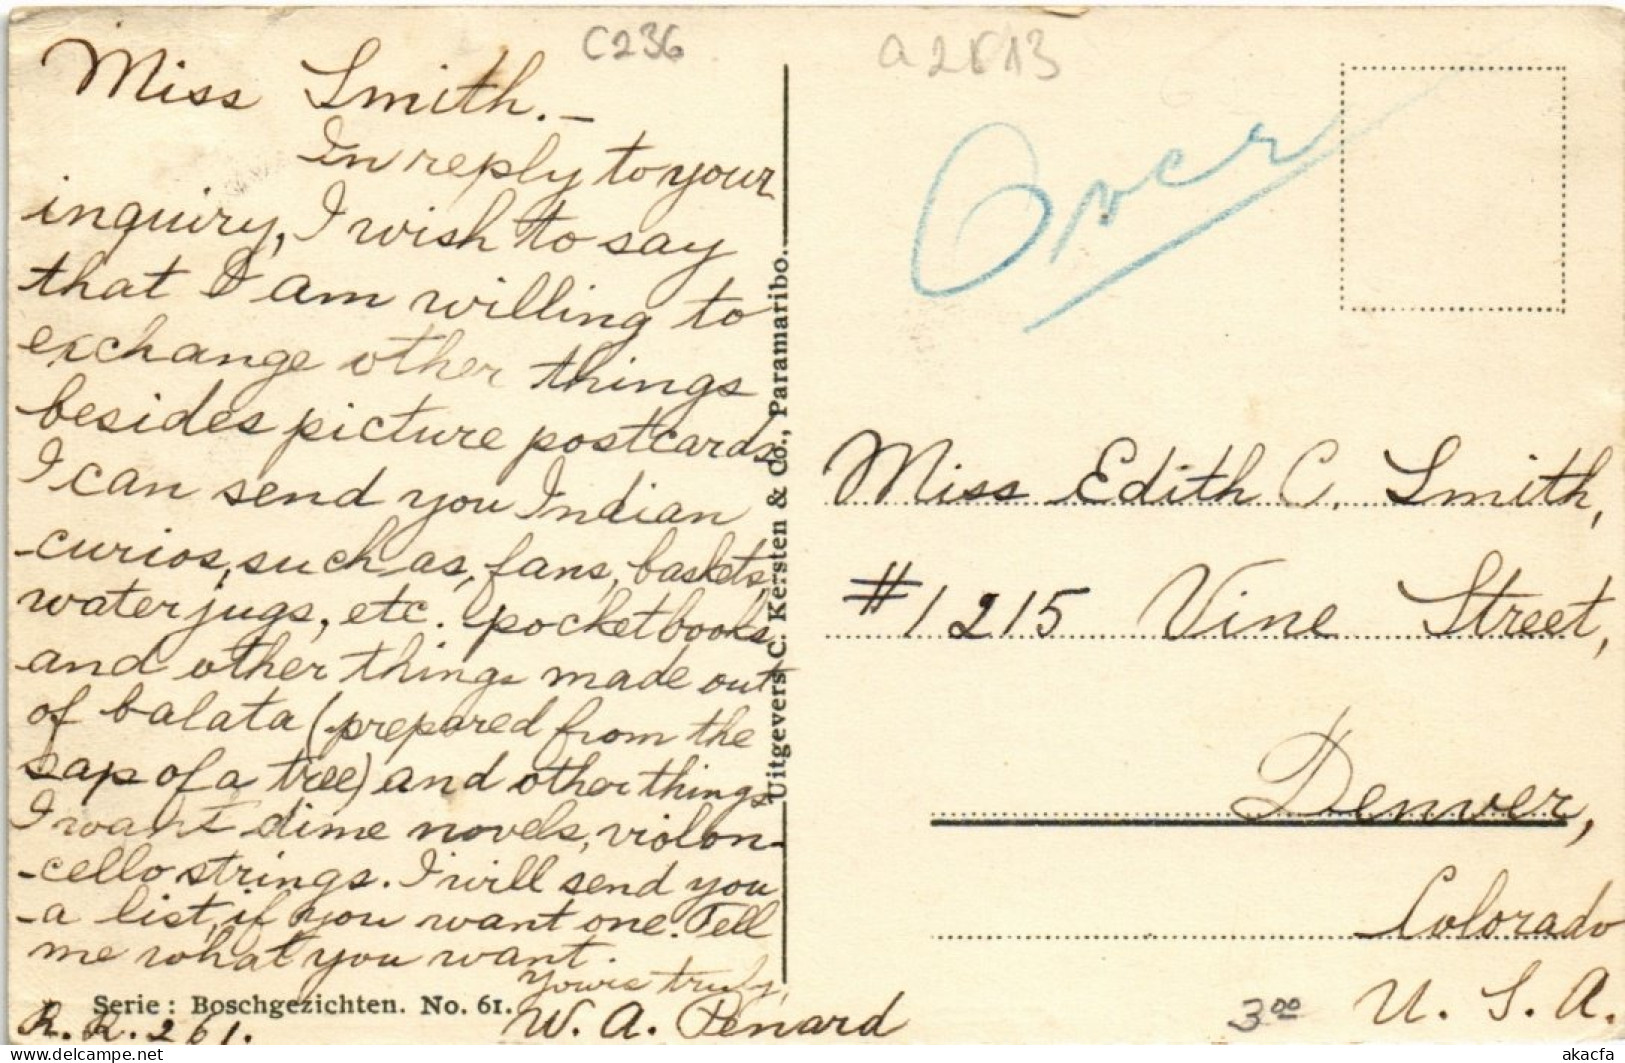 C236
a2513
Over
Miss Smith.—
In reply to your
inquiry, I wish to say
that I am willing to
exchange other things
besides picture postcards.
I can send you Indian
curios, such as, fans, baskets,
water jugs, etc. pocketbooks
and other things made out
of balata (prepared from the
sap of a tree) and other things.
I want dime novels, violon-
cello strings. I will send you
a list, if you want one. Tell
me what you want.
Yours truly,
W. A. Penard
R. R. 261.
Serie: Boschgezichten. No. 61.
Uitgevers C. Kersten & Co., Paramaribo.
Miss Edith C. Smith,
#1215 Vine Street,
Denver,
Colorado
U. S. A.
3⁰⁰
akacfa